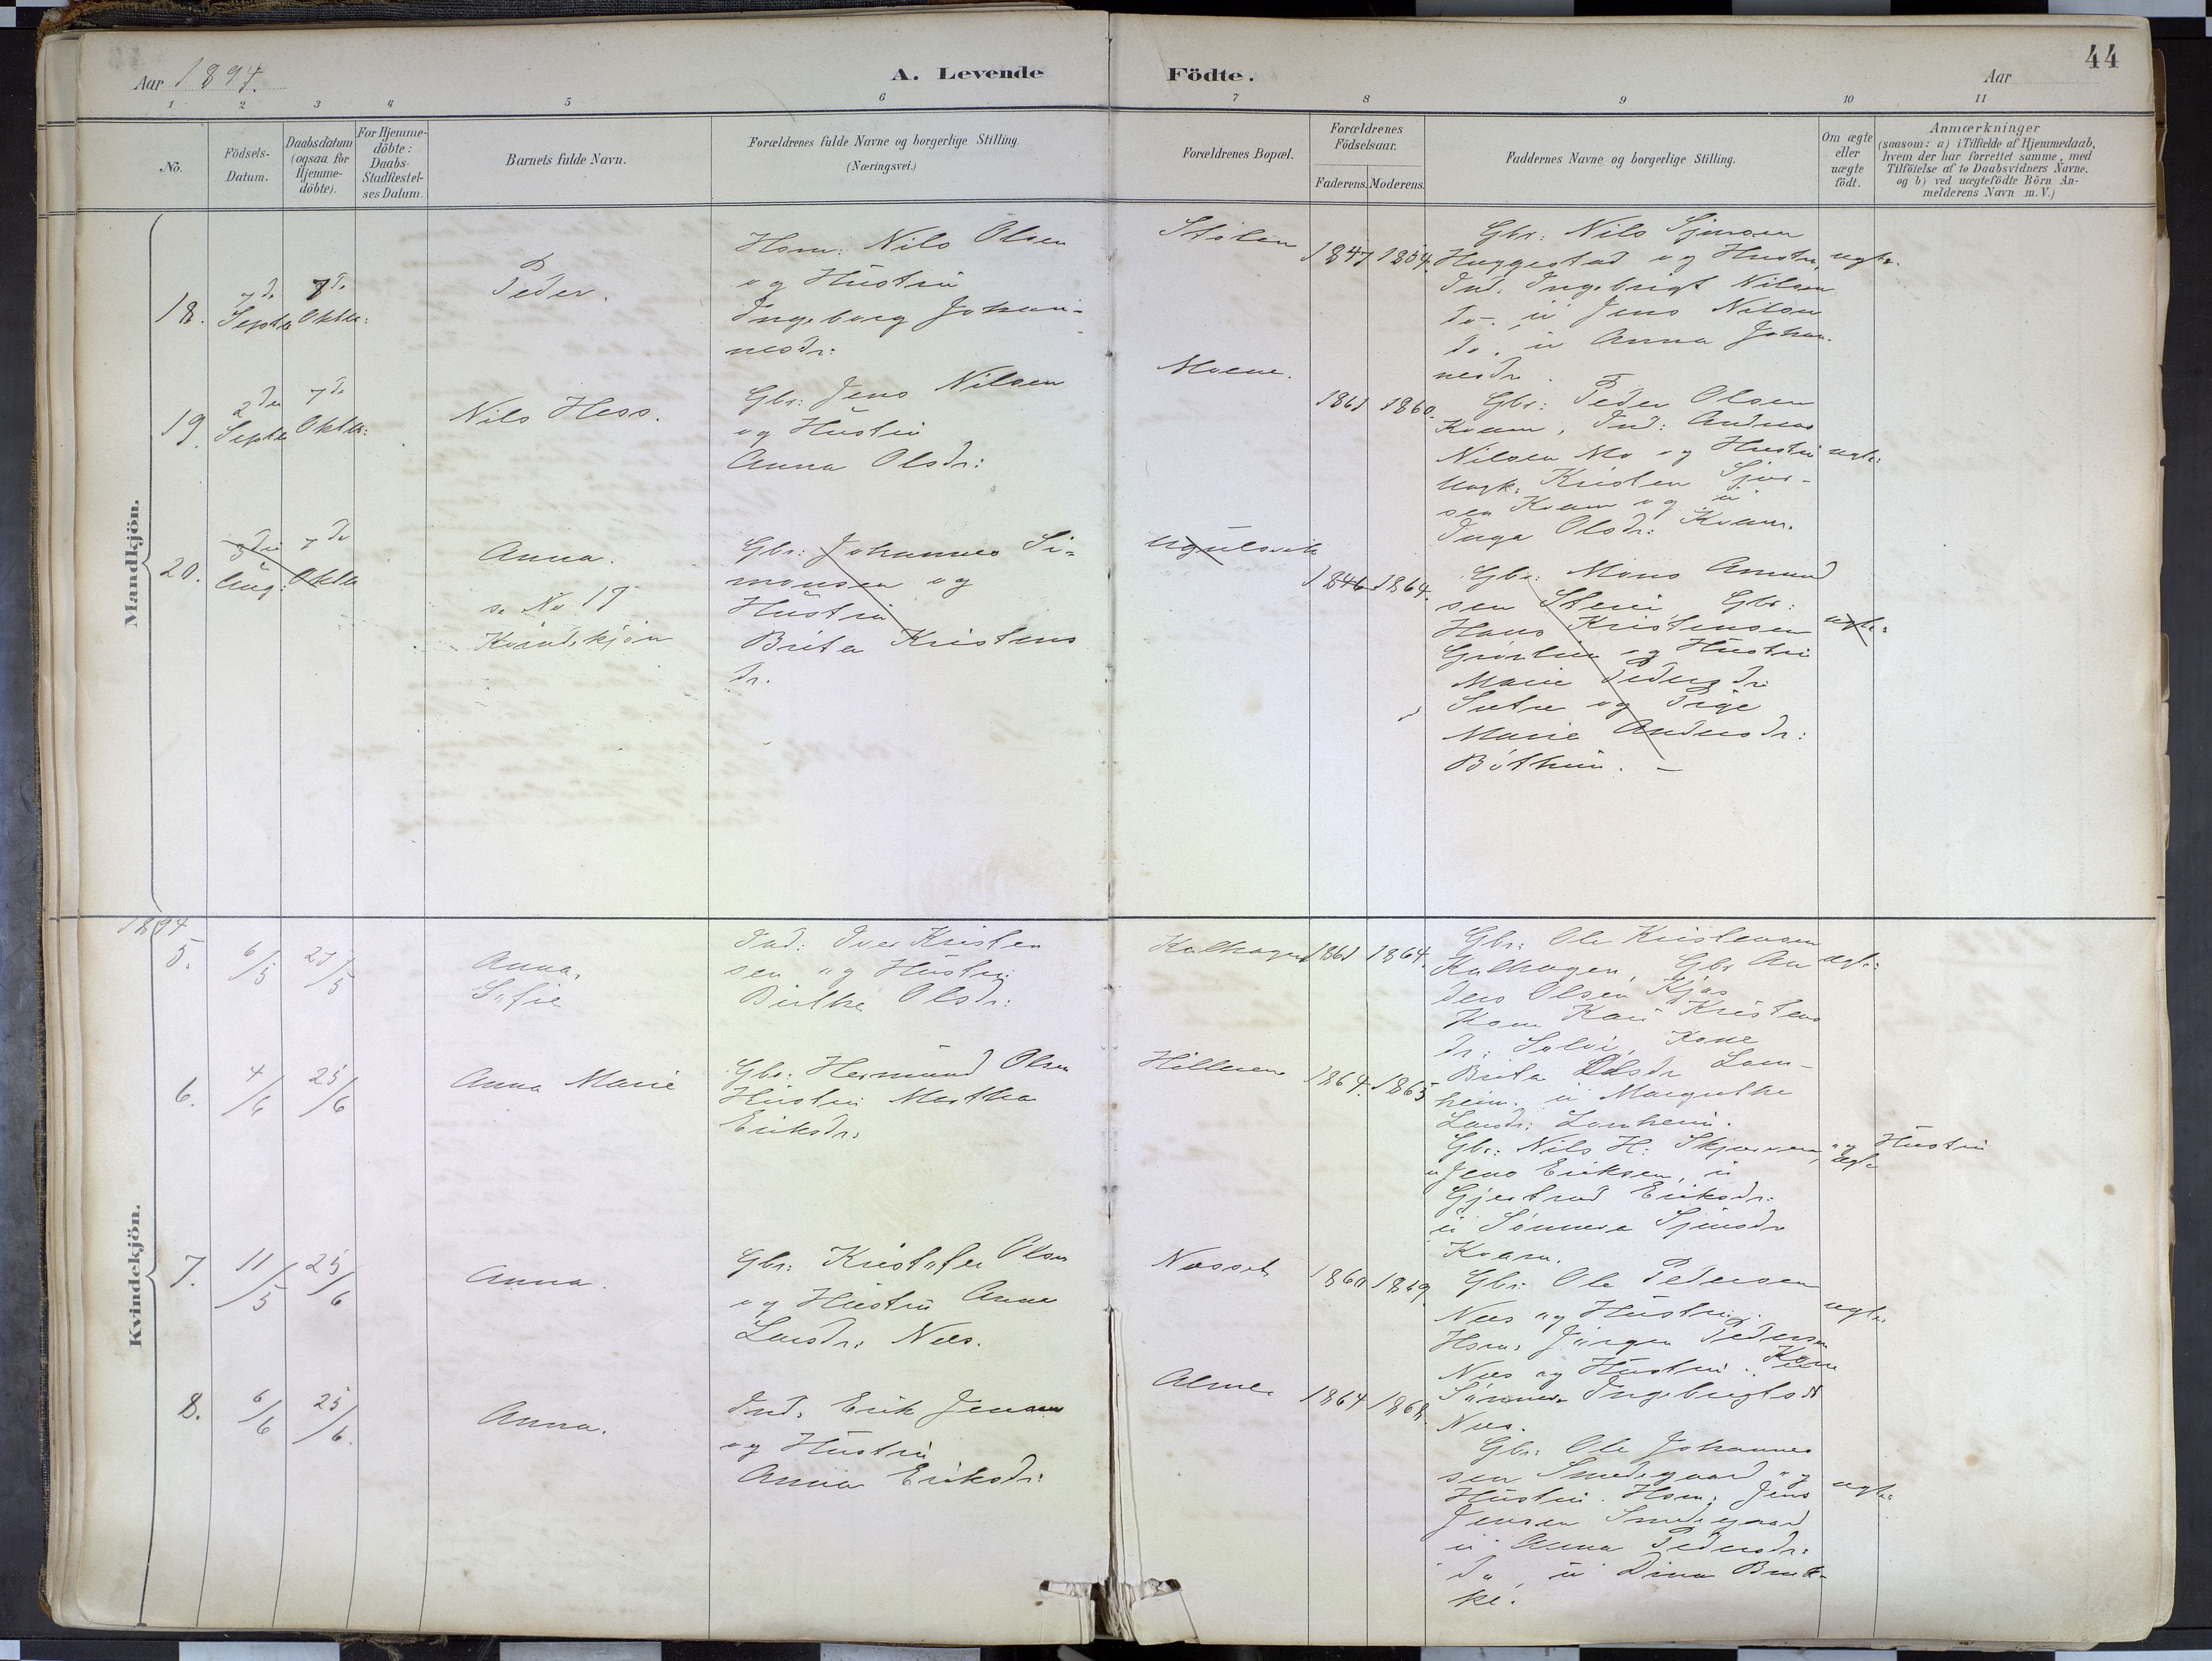 44
Aar 1894.
A. Levende Födte.
Aar
1 2 3 4 5 6 7 8 9 10 11
No.
Födsels-
Datum.
Daabsdatum
(ogsaa for
Hjemme-
döbte).
For Hjemme-
döbte:
Daabs-
Stadfæstel-
ses Datum.
Barnets fulde Navn.
Forældrenes fulde Navne og borgerlige Stilling
(Næringsvei.)
Forældrenes Bopæl.
Forældrenes
Födselsaar.
Faderens. Moderens.
Faddernes Navne og borgerlige Stilling.
Om ægte
eller
uægte
födt.
Anmærkninger
(saasom: a) i Tilfælde af Hjemmedaab,
hvem der har forrettet samme, med
Tilföielse af to Daabsvidners Navne.
og b) ved uægtefödte Börn An-
melderens Navn m. V.)
Mandkjön.
18.
7de
Septbr
7de
Oktbr:
Peder.
Hsm: Nils Olsen
og Hustru
Ingeborg Johan-
nesdr:
Stölen
1847 1854.
Gbr: Nils Sjursen
Haggestad og Hustru,
Ind: Ingebrigt Nilsen
do. u Jens Nilsen
do. u Anna Johan-
nesdr.
ægte.
19.
2den
Septbr
7de
Oktbr:
Nils Hess.
Gbr: Jens Nilsen
og Hustru
Anna Olsdr:
Moene.
1861 1860.
Gbr: Peder Olsen
Kvam, Ind: Andreas
Nilsen Mo og Hustru
Ungk: Kristen Sjur-
sen Kvam og u
Inga Olsdr: Kvam.
ægte:
20.
3die
Aug:
7de
Oktbr
Anna.
se No 17
Kvindekjön
Gbr: Johannes Si-
monsen og
Hustru
Brita Kristens
dr.
1846 1864.
Gbr: Mons Amund
sen Gbr:
Hans Kristensen
og Hustru
Marie Pedersdr
og Pige
Marie Andersdr:
Böthun. –
ægte:
Kvindekjön.
1894
5.
6/5
27/5
Anna
Sofie
Ind: Iver Kristen
sen og Hustru
Birthe Olsdr:
Kalhagen
1861 1864.
Gbr: Ole Kristensen
Kalhagen, Gbr An
ders Olsen Kjös
Kone Kari Kristens
dr: Kone
Brita Olsdr Lom-
heim. u Margrethe
Larsdr: Lomheim.
ægte:
6.
4/6
25/6
Anna Marie
Gbr: Hermund Olsen
Hustru Martha
Eriksdr:
Hillerene
1864. 1865
Gbr: Nils H: og Hustru
u Jens Eriksen, u
Gjertrud Eriksdr:
u Sönneva Sjursdr
Kvam.
ægte
7.
11/5
25/6
Anna.
Gbr: Kristofer Olsen
og Hustru Anna
Larsdr: Nes.
1860 1869.
Gbr: Ole Pedersen
Nes og Hustru,
Hsm: Jörgen Pedersen
Nes og Hustru. Kone
Sönneva Ingebrigtsdr
Nes.
ægte.
8.
6/6
25/6.
Anna.
Ind: Erik Jensen
og Hustru
Anna Eriksdr:
Alme.
1864 1868.
Gbr: Ole Johannes
sen Smedegaard og
Hustru. Hsm: Jens
Jensen Smedegaard
u Anna Pedersdr:
do, u Dina Brek-
ke.
ægte: